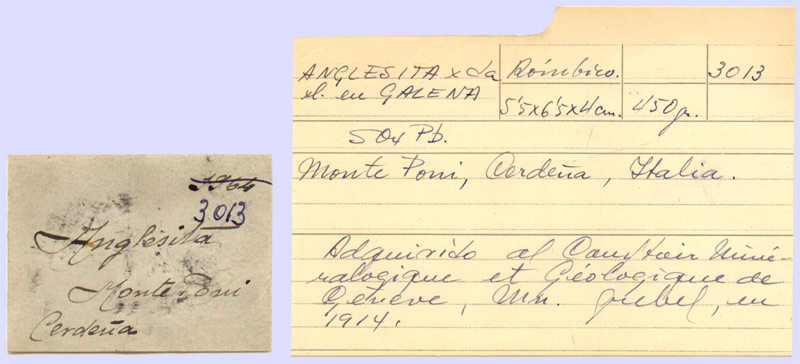 3013
Anglesita
Monte Poni
Cerdeña
ANGLESITA x da Rómbico. 3013
xl. en GALENA
5'5x6'5x4 cm. 450 gr.
SO4 Pb.
Monte Poni, Cerdeña, Italia.
Adquirido al Comptoir Miné-
ralogique et Geologique de
Géneve, Mn. Grebel, en
1914.